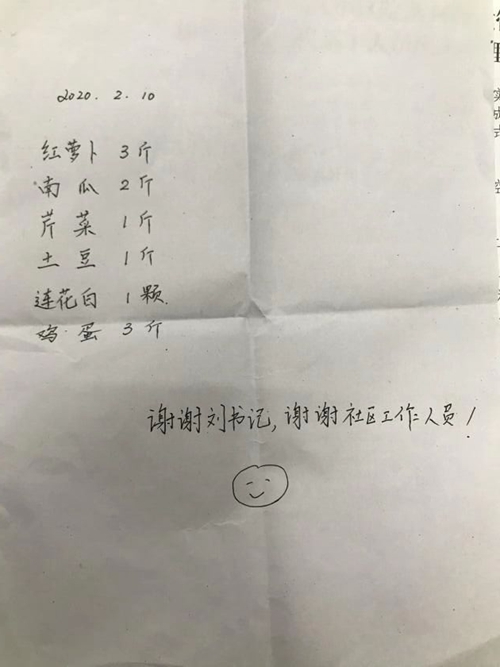 2020.2.10
红萝卜 3斤
南瓜 2斤
芹菜 1斤
土豆 1斤
莲花白 1颗
鸡蛋 3斤
谢谢刘书记,谢谢社区工作人员!